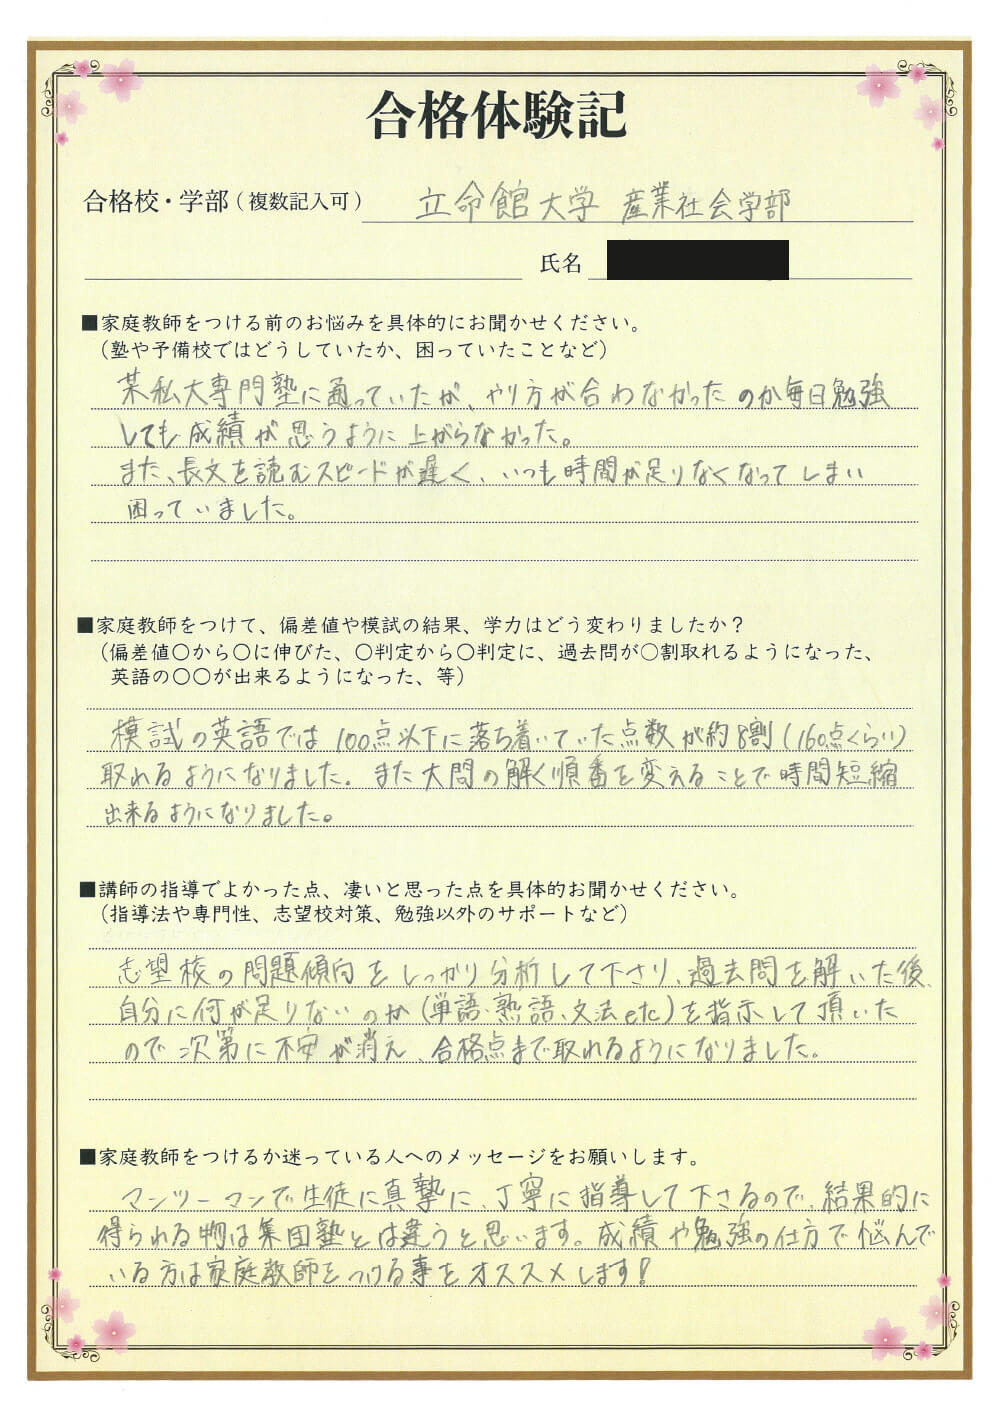 合格体験記
合格校・学部（複数記入可） 立命館大学 産業社会学部
氏名
■家庭教師をつける前のお悩みを具体的にお聞かせください。
（塾や予備校ではどうしていたか、困っていたことなど）
某私大専門塾に通っていたが、やり方が合わなかったのか毎日勉強
しても成績が思うように上がらなかった。
また、長文を読むスピードが遅く、いつも時間が足りなくなってしまい
困っていました。
■家庭教師をつけて、偏差値や模試の結果、学力はどう変わりましたか？
（偏差値〇から〇に伸びた、〇判定から〇判定に、過去問が〇割取れるようになった、
英語の〇〇が出来るようになった、等）
模試の英語では100点以下に落ち着いていた点数が約8割（160点くらい）
取れるようになりました。また大問の解く順番を変えることで時間短縮
出来るようになりました。
■講師の指導でよかった点、凄いと思った点を具体的お聞かせください。
（指導法や専門性、志望校対策、勉強以外のサポートなど）
志望校の問題傾向をしっかり分析して下さり、過去問を解いた後、
自分に何が足りないのか（単語、熟語、文法etc）を指示して頂いた
ので次第に不安が消え、合格点まで取れるようになりました。
■家庭教師をつけるか迷っている人へのメッセージをお願いします。
マンツーマンで生徒に真摯に、丁寧に指導して下さるので、結果的に
得られる物は集団塾とは違うと思います。成績や勉強の仕方で悩んで
いる方は家庭教師をつける事をオススメします！